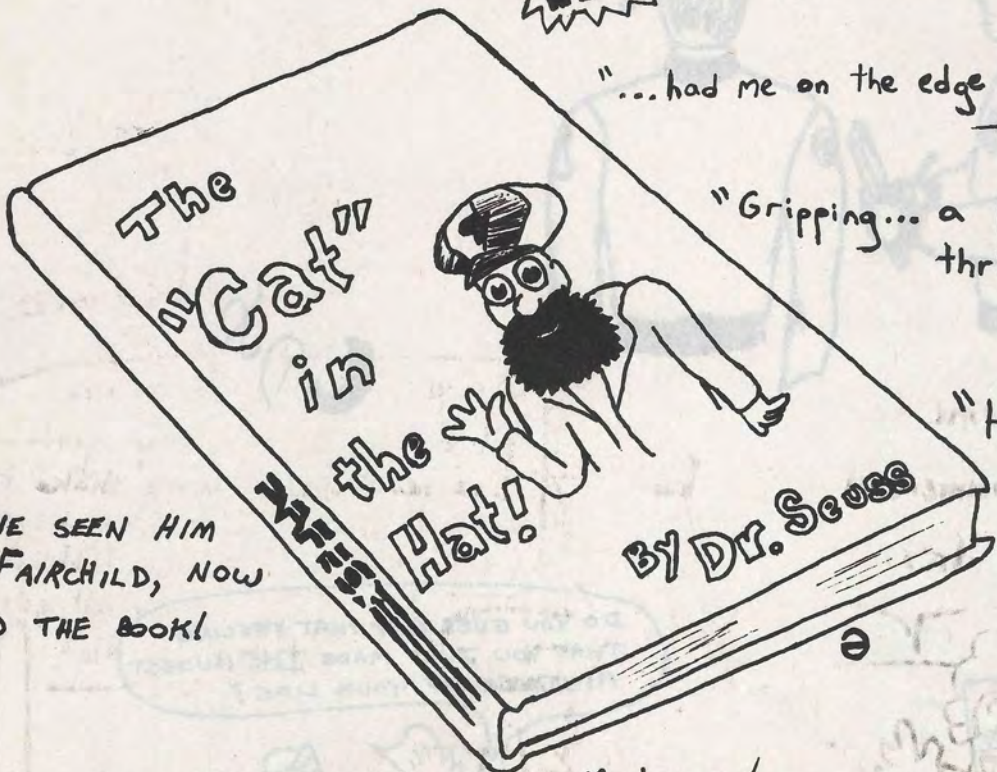 "...had me on the edge
"Gripping... a
thr
The
"Cat"
in
the
Hat!
By Dr. Seuss
"H
SEEN HIM
FAIRCHILD, NOW
THE BOOK!